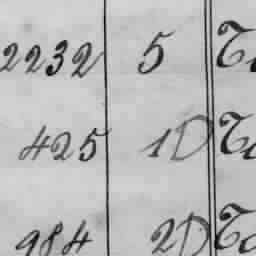 2232 5
425 1D
984 2D